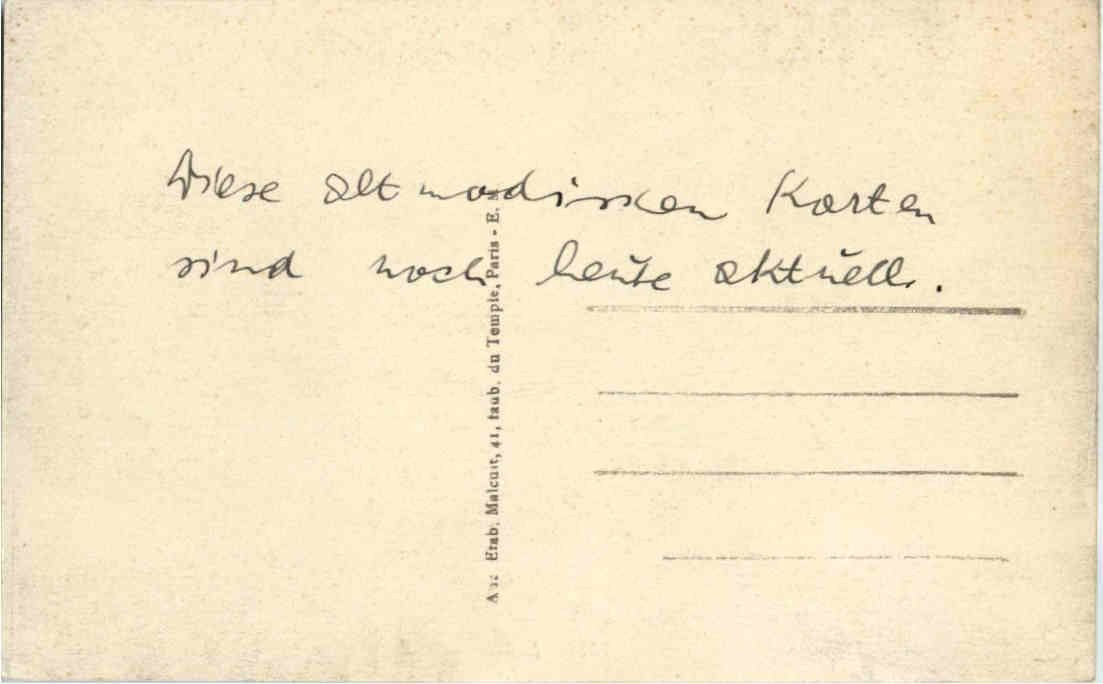 Diese altmodischen Karten
sind noch heute aktuell.
Etab. Malcuit, 41, faub. du Temple, Paris - E.